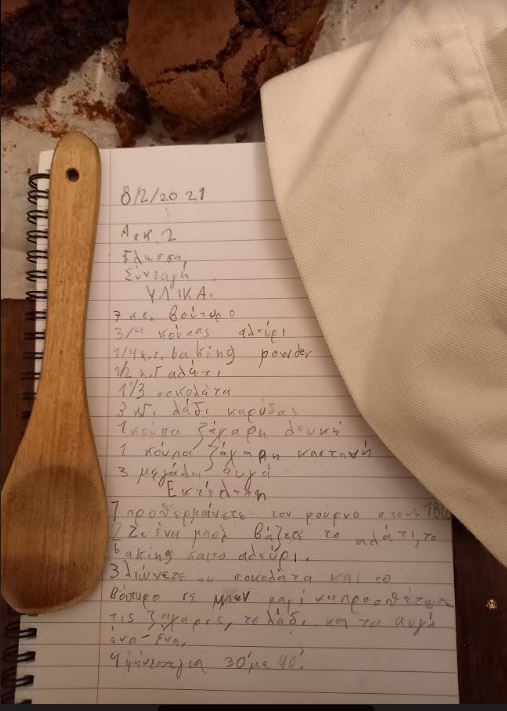 8/2/2021
Ασκ. 2
Γλώσσα
Συνταγή
ΥΛΙΚΑ.
7 κ.σ. βούτυρο
3/4 κούπας αλεύρι
1/4 κ.γ. baking powder
1/2 κ.γ αλάτι
1 1/3 σοκολάτα
3 κγ. λάδι καρύδας
1 κούπα ζάχαρη λευκή
1 κούπα ζάχαρη καστανή
3 μεγάλα αυγά
Εκτέλεση
1 προθερμάνετε τον φούρνο στους 180
2 Σε ένα μπολ βάζετε το αλάτι, το
baking και το αλεύρι.
3 λιώνετε τη σοκολάτα και το
βούτυρο σε μπεν μαρί να προσθέτετε
τις ζάχαρες, το λάδι και τα αυγά
ένα-ένα.
4 ψήνετε για 30' με 40'.